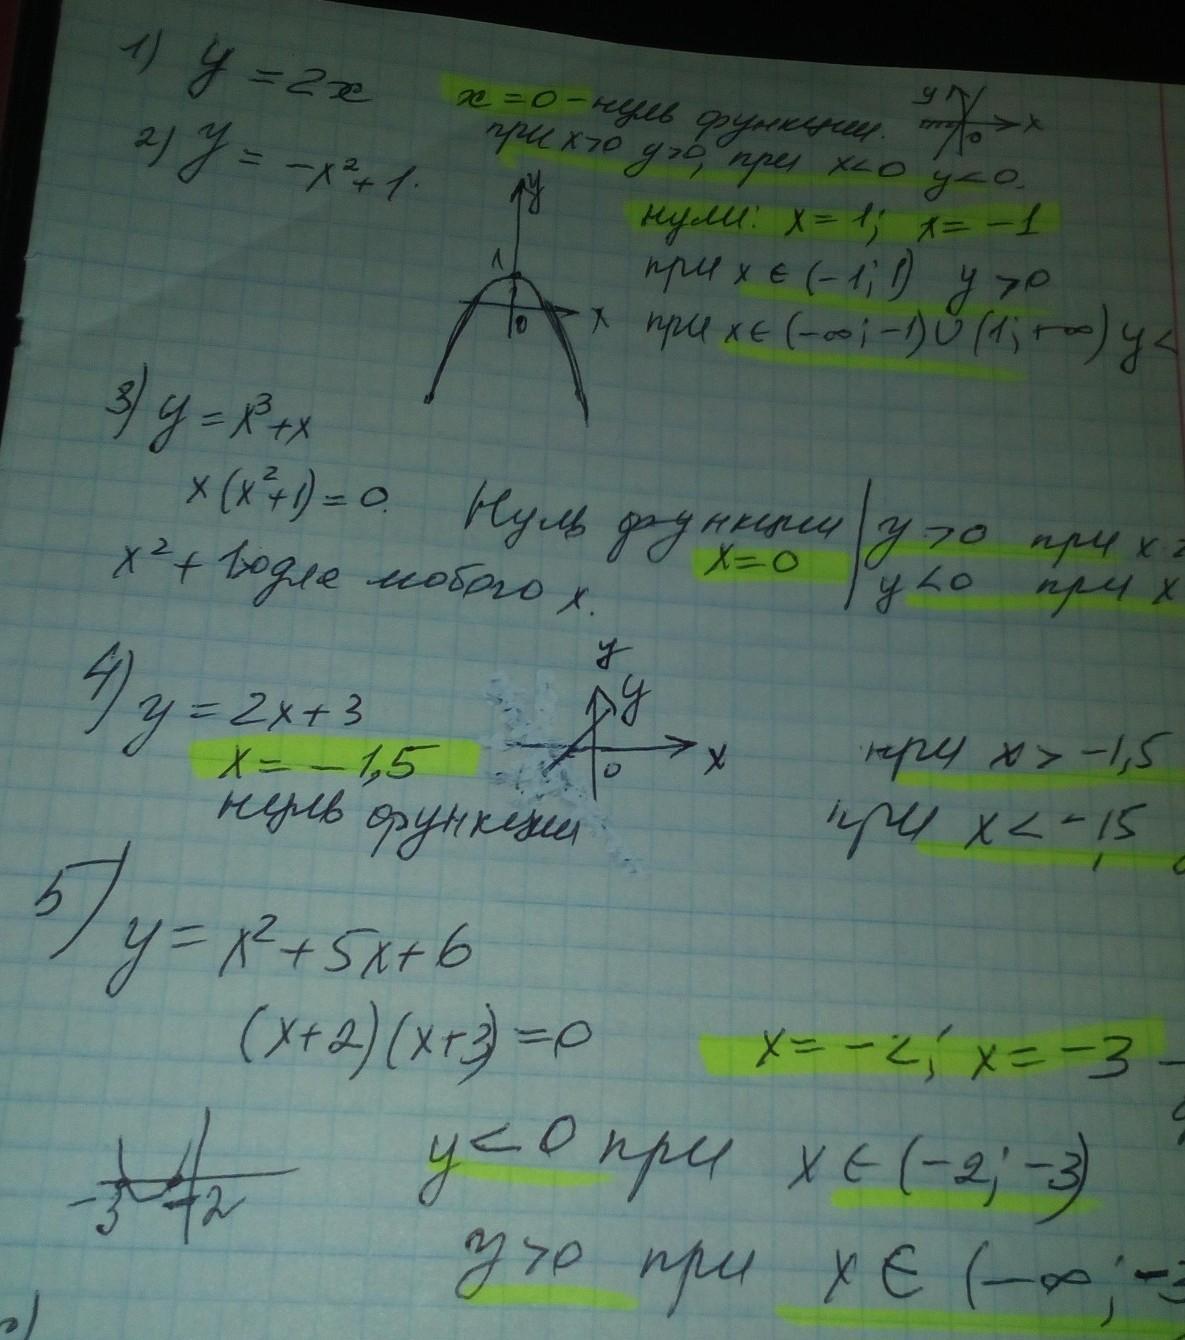 1) y = 2x
x = 0 - нуль функции.
y x 0
при x>0 y>0, при x<0 y<0.
2) y = -x²+1.
нули: x = 1; x = -1
при x ∈ (-1; 1) y > 0
y 1 0 x
при x ∈ (-∞; -1) ∪ (1; +∞) y <
3) y = x³+x
x(x²+1) = 0.
Нуль функции
x = 0
y > 0 при x
y < 0 при x
x² + 1>0 для любого x.
4) y = 2x+3
y
y
0 x
x = -1,5
нуль функции
при x > -1,5
при x < -1,5
5) y = x² + 5x + 6
(x+2)(x+3) = 0
x = -2; x = -3 -
y < 0 при x ∈ (-2; -3)
-3 -2
y > 0 при x ∈ (-∞; -3